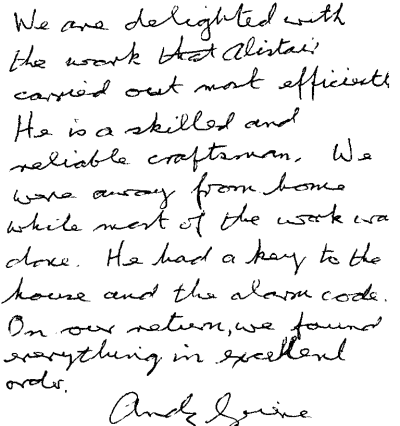 We are delighted with
the work that Alistair
carried out most efficiently
He is a skilled and
reliable craftsman. We
were away from home
while most of the work wa
done. He had a key to the
house and the alarm code.
On our return, we found
everything in excellent
order.
Andy